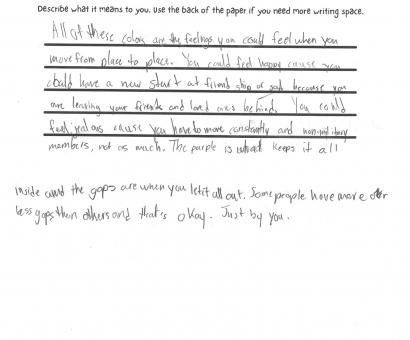 Describe what it means to you. Use the back of the paper if you need more writing space.
All of these colors are the feelings you could feel when you
move from place to place. You could feel happy cause you
could have a new start at friend ship or sad because you
are leaving your friends and loved ones behind. You could
feel jealous cause you have to move constantly and non-military
members, not as much. The purple is what keeps it all
inside and the gaps are when you let it all out. Some people have more or
less gaps then others and that's okay. Just by you.